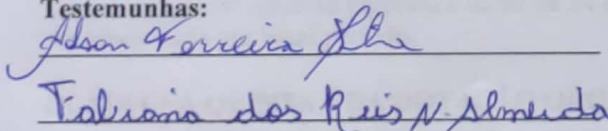 Testemunhas:
Adson Ferreira
Fabiana dos Reis N. Almeida